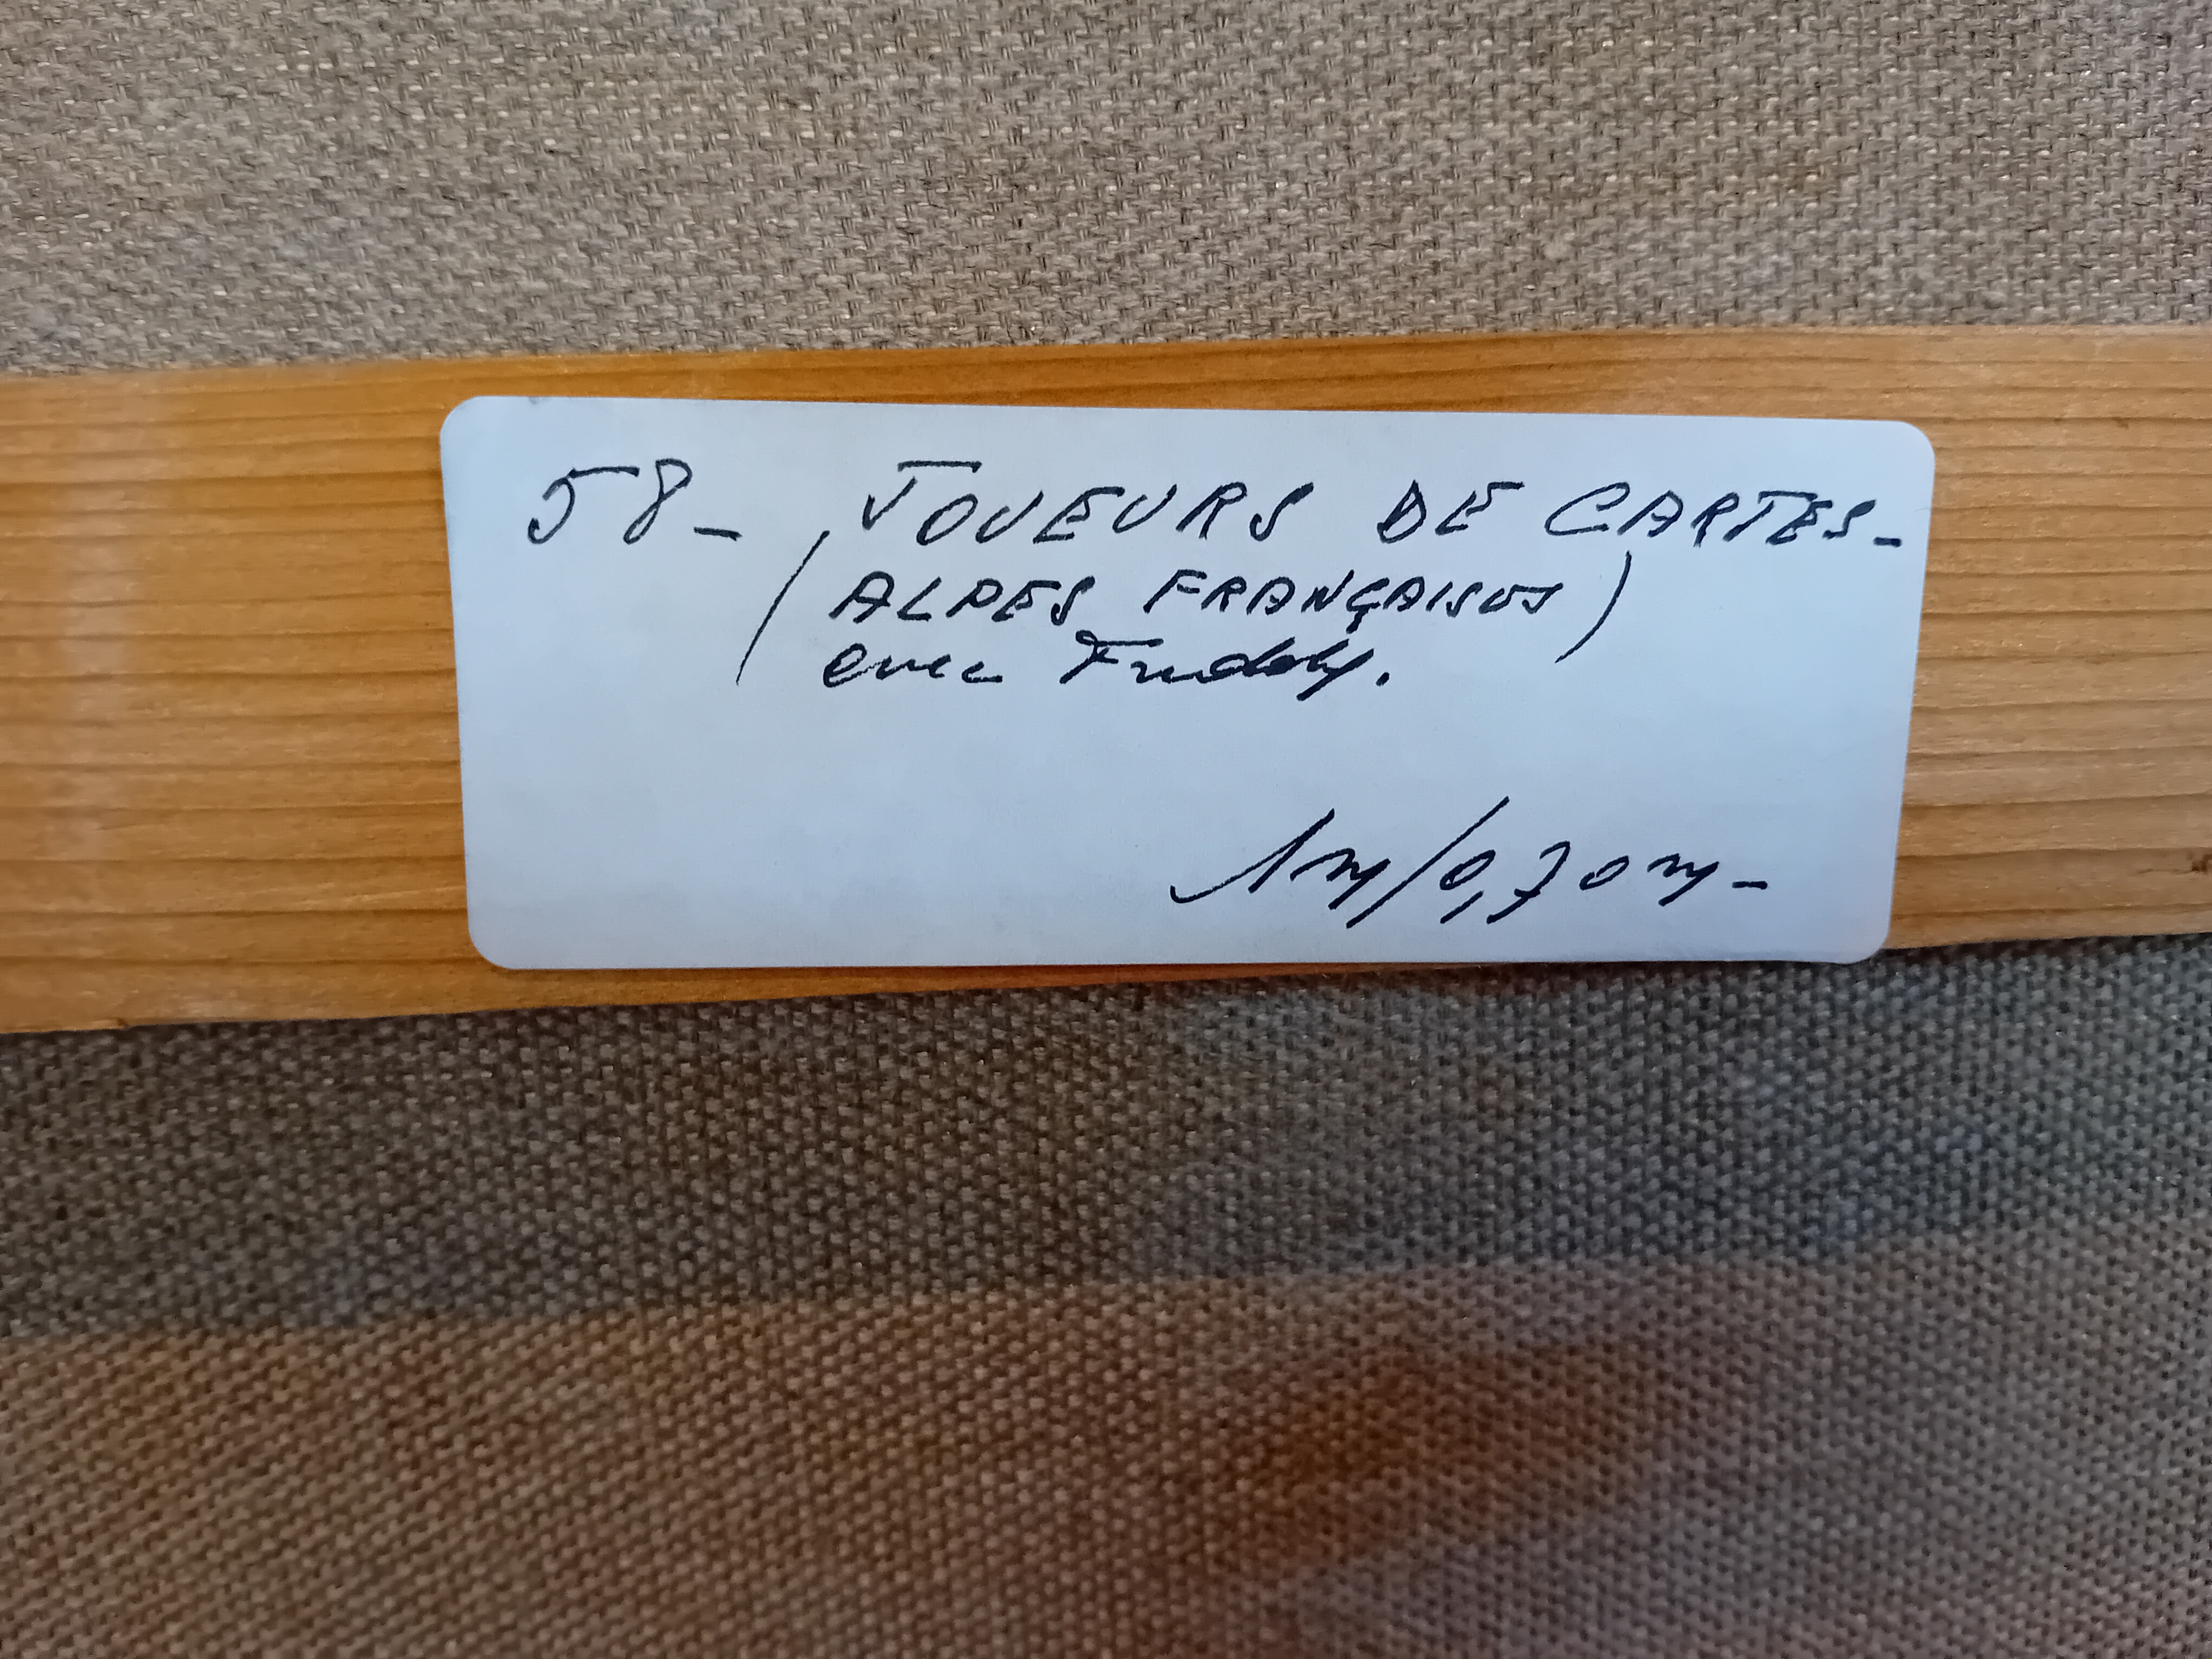 58 - JOUEURS DE CARTES -
( ALPES FRANÇAISES )
avec Freddy.
1m/0,70m -